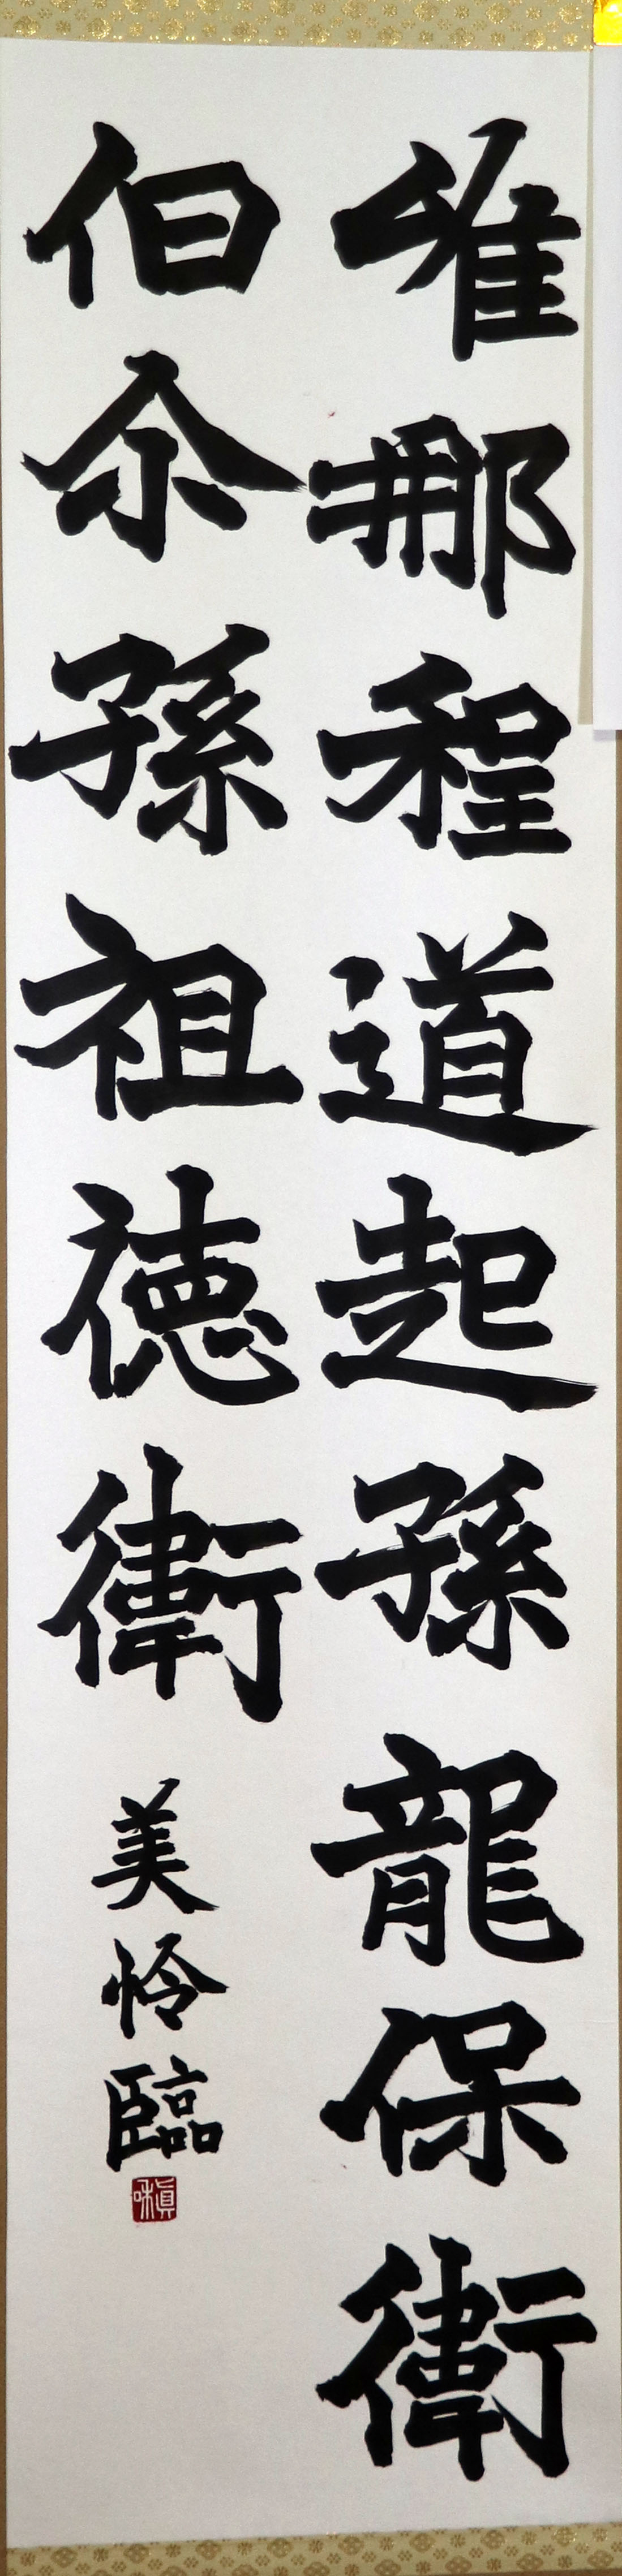 維那程道起孫龍保衛
伯尒孫祖德衛
美怜臨
眞味